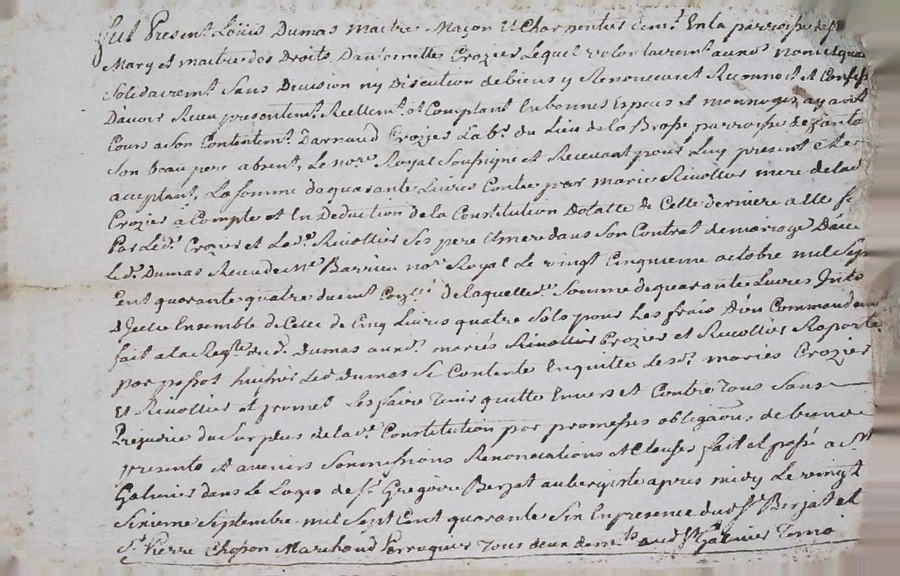 fut Present Loüis Dumas maitre Maçon Et Charpentier demt En la parroisse de st
Mary et maitre des Droits Danne Crozier Lequel volontairement aux noms
Solidairemt Sans Division ny Discution de biens y Renonceant Reconnoit et Confesse
D'avoir Receu presentemt Reellemt et Comptant En bonnes Especes et monnoyes ayant
Cours a Son Contentemt Darnaud Crozier Labr du Lieu de la Brosse parroisse de
Son beau pere absent, Le nore Royal Soussigné et Recevant pour Luy present et
acceptant, La somme de quarante Livres Contée par marie Rivollier mere de lad
Crozier a Compte et En Deduction de la Constitution Dotalle de Celle derniere a Elle f
Par Led Crozier et Lade Rivollier Ses pere et mere dans Son Contrat de mariage Avec
Led Dumas Receu de Me Barrieu nore Royal Le vingt Cinquieme octobre mil Sept
Cent quarante quatre duemt de laquelle Somme de quarante Livres
d'Jcelle Ensemble de Celle de Cinq Livres quatre Solz pour Les fraix D'un Commandemt
fait a la Reqte dud Dumas aux mariés Rivollier Crozier et Rivollier Raporté
par possot huissier Led Dumas Se Contente En quitte Lesd mariés Crozier
Et Rivollier et promet Les faire Tenir quitte Envers et Contre Tous Sans
Préjudice du Surplus de lade Constitution par promesses obligaons de biens
presents et avenirs Soumissions Renonciations et Clauses fait et passé a St
Galmier dans Le Logis de Sr Gregoire Berjat aubergiste apres midy Le vingt
Sixieme Septembre mil Sept Cent quarante Six En presence dud Sr Berjat et
Sr Pierre Chopon Marchand Perruquier Tous deux demts aud St Galmier Temo